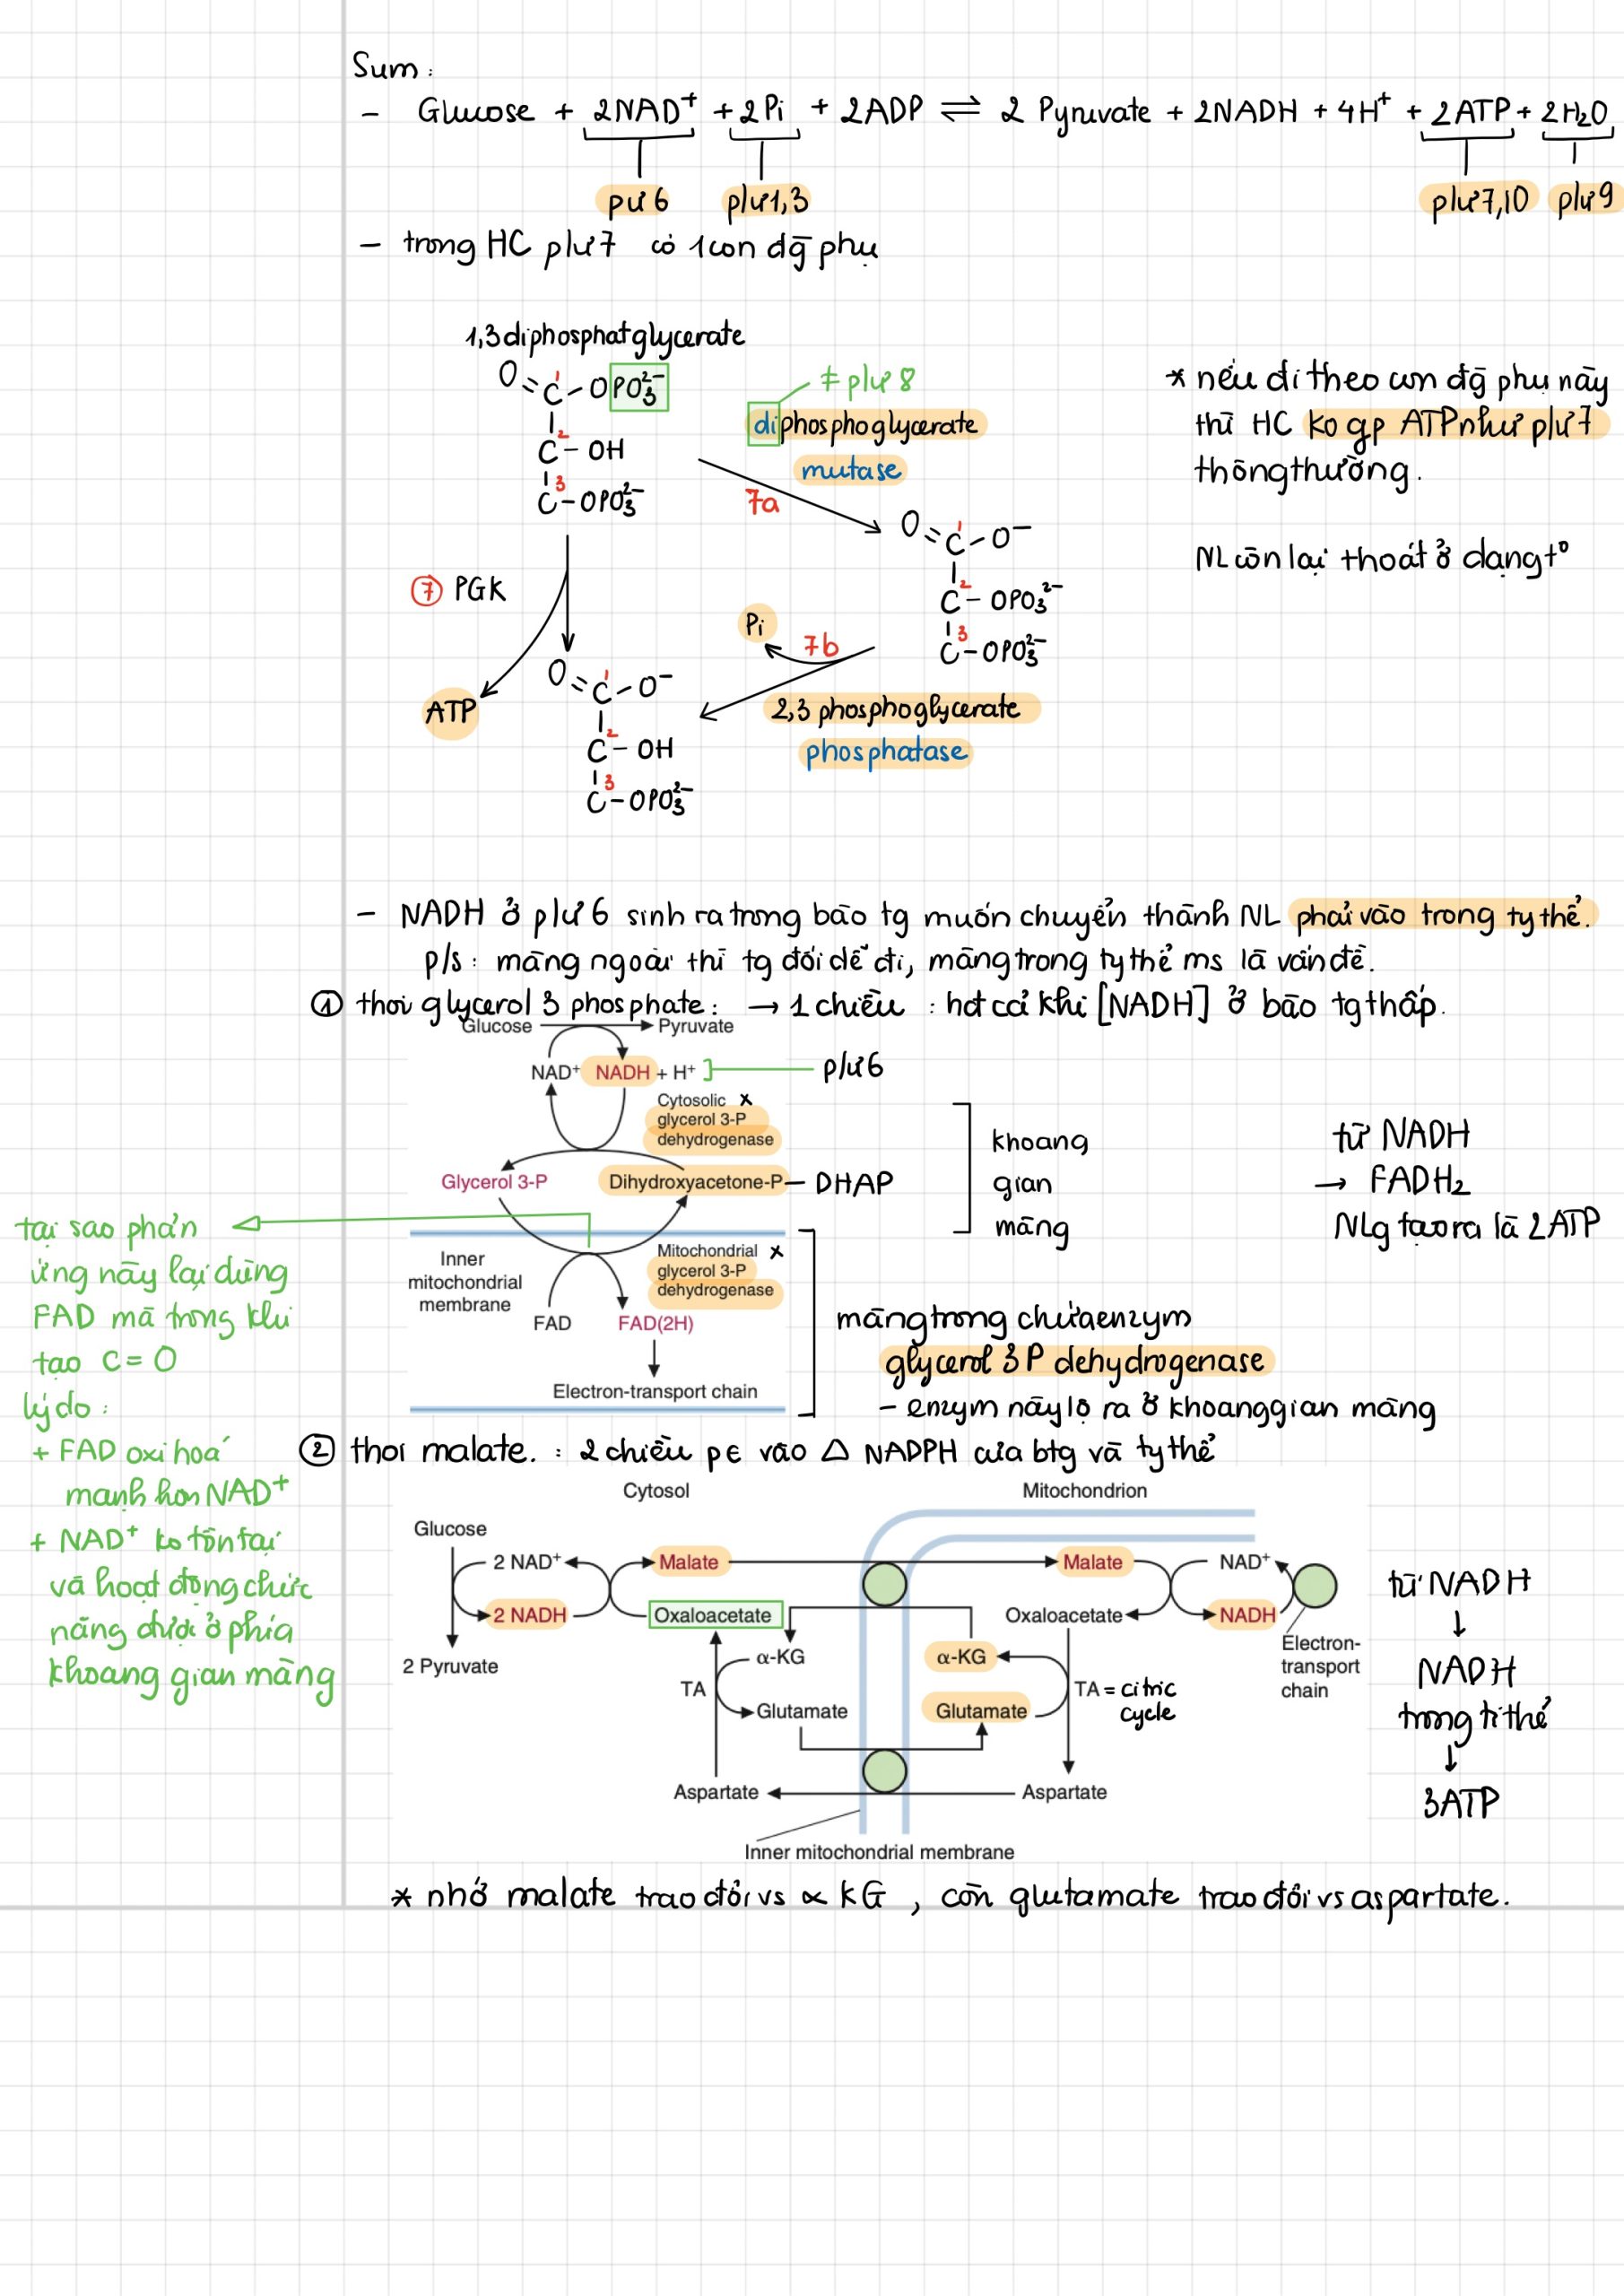 Sum:
- Glucose + 2NAD⁺ + 2Pi + 2ADP ⇌ 2 Pyruvate + 2NADH + 4H⁺ + 2ATP + 2H₂O
pư 6
plư 1,3
plư 7,10
plư 9
- trong HC plư 7 có 1 con đg̃ phụ
1,3 diphosphatglycerate
O=C¹-OPO₃²⁻
C²-OH
C³-OPO₃²⁻
≠ plư 8
diphosphoglycerate
mutase
7a
* nếu đi theo con đg̃ phụ này
thì HC ko gp ATP như plư 7
thông thường.
NL còn lại thoát ở dạng t°
O=C¹-O⁻
C²-OPO₃²⁻
C³-OPO₃²⁻
⑦ PGK
ATP
Pi
7b
2,3 phosphoglycerate
phosphatase
O=C¹-O⁻
C²-OH
C³-OPO₃²⁻
- NADH ở plư 6 sinh ra trong bào tg muốn chuyển thành NL phải vào trong ty thể.
p/s: màng ngoài thì tg đối dễ đi, màng trong ty thể ms là vấn đề.
① thoi glycerol 3 phosphate: → 1 chiều : hđ cả khi [NADH] ở bào tg thấp.
Glucose
Pyruvate
NAD⁺
NADH + H⁺
plư 6
Cytosolic x
glycerol 3-P
dehydrogenase
Glycerol 3-P
Dihydroxyacetone-P
- DHAP
khoang
gian
màng
từ NADH
→ FADH₂
NLg tạo ra là 2ATP
Inner
mitochondrial
membrane
Mitochondrial x
glycerol 3-P
dehydrogenase
FAD
FAD(2H)
Electron-transport chain
màng trong chứa enzym
glycerol 3P dehydrogenase
- enzym này lộ ra ở khoang gian màng
tại sao phản
ứng này lại dùng
FAD mà trong khi
tạo C=O
lý do:
+ FAD oxi hoá
mạnh hơn NAD⁺
+ NAD⁺ ko tồn tại
và hoạt động chức
năng được ở phía
khoang gian màng
② thoi malate. : 2 chiều p∈ vào △ NADPH của btg và ty thể
Cytosol
Mitochondrion
Glucose
2 NAD⁺
Malate
Malate
NAD⁺
2 NADH
Oxaloacetate
Oxaloacetate
NADH
2 Pyruvate
α-KG
α-KG
Electron-
transport
chain
TA
Glutamate
Glutamate
TA = citric
cycle
Aspartate
Aspartate
Inner mitochondrial membrane
từ NADH
↓
NADH
trong ti thể
↓
3ATP
* nhớ malate trao đổi vs ∝ KG , còn glutamate trao đổi vs aspartate.